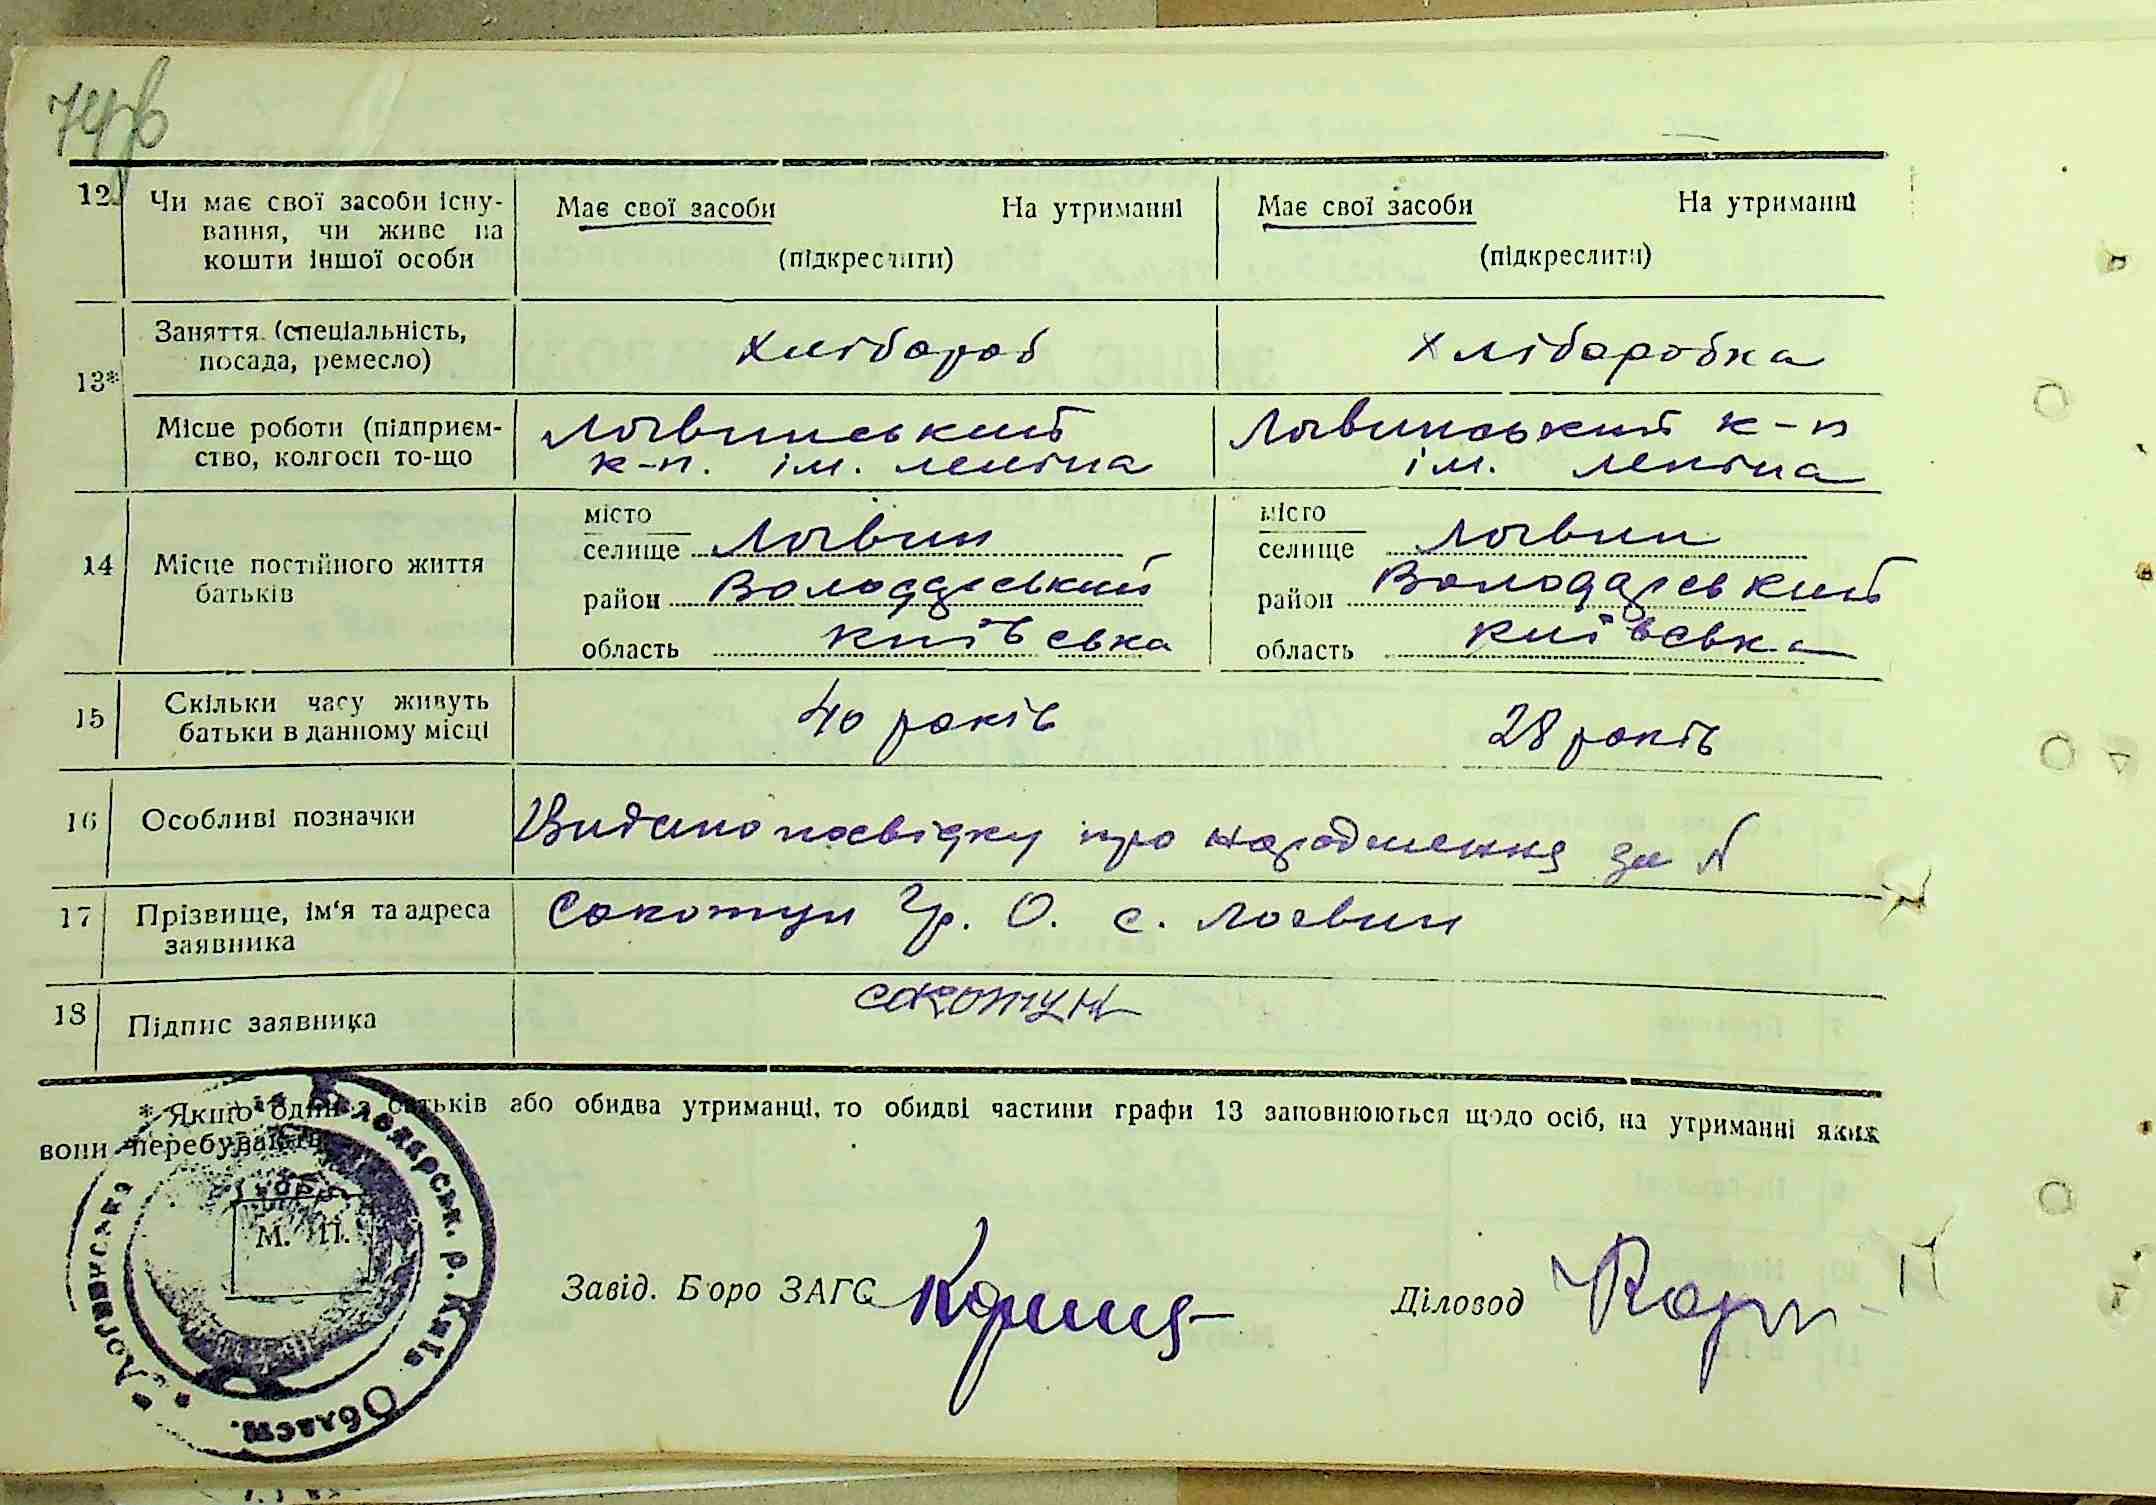 12
Чи має свої засоби існу-
вання, чи живе на
кошти іншої особи
Має свої засоби На утриманні
(підкреслити)
Має свої засоби На утриманні
(підкреслити)
13*
Заняття (спеціальність,
посада, ремесло)
Хлібороб
Хліборобка
Місце роботи (підприєм-
ство, колгосп то-що
Логвинський
к-п. ім. Леніна
Логвинський к-п
ім. Леніна
14
Місце постійного життя
батьків
місто
селище Логвин
район Володарський
область Київська
місто
селище Логвин
район Володарський
область Київська
15
Скільки часу живуть
батьки в данному місці
40 років
28 років
16
Особливі позначки
Видано посвідку про народження за №
17
Прізвище, ім'я та адреса
заявника
Сокотун Гр. О. с. Логвин
18
Підпис заявника
Сокотун
* Якщо один з батьків або обидва утриманці, то обидві частини графи 13 заповнюються щодо осіб, на утриманні яких
вони перебувають
М. П.
Володарськ. р. Київ. Області.
Завід. Бюро ЗАГС
Діловод